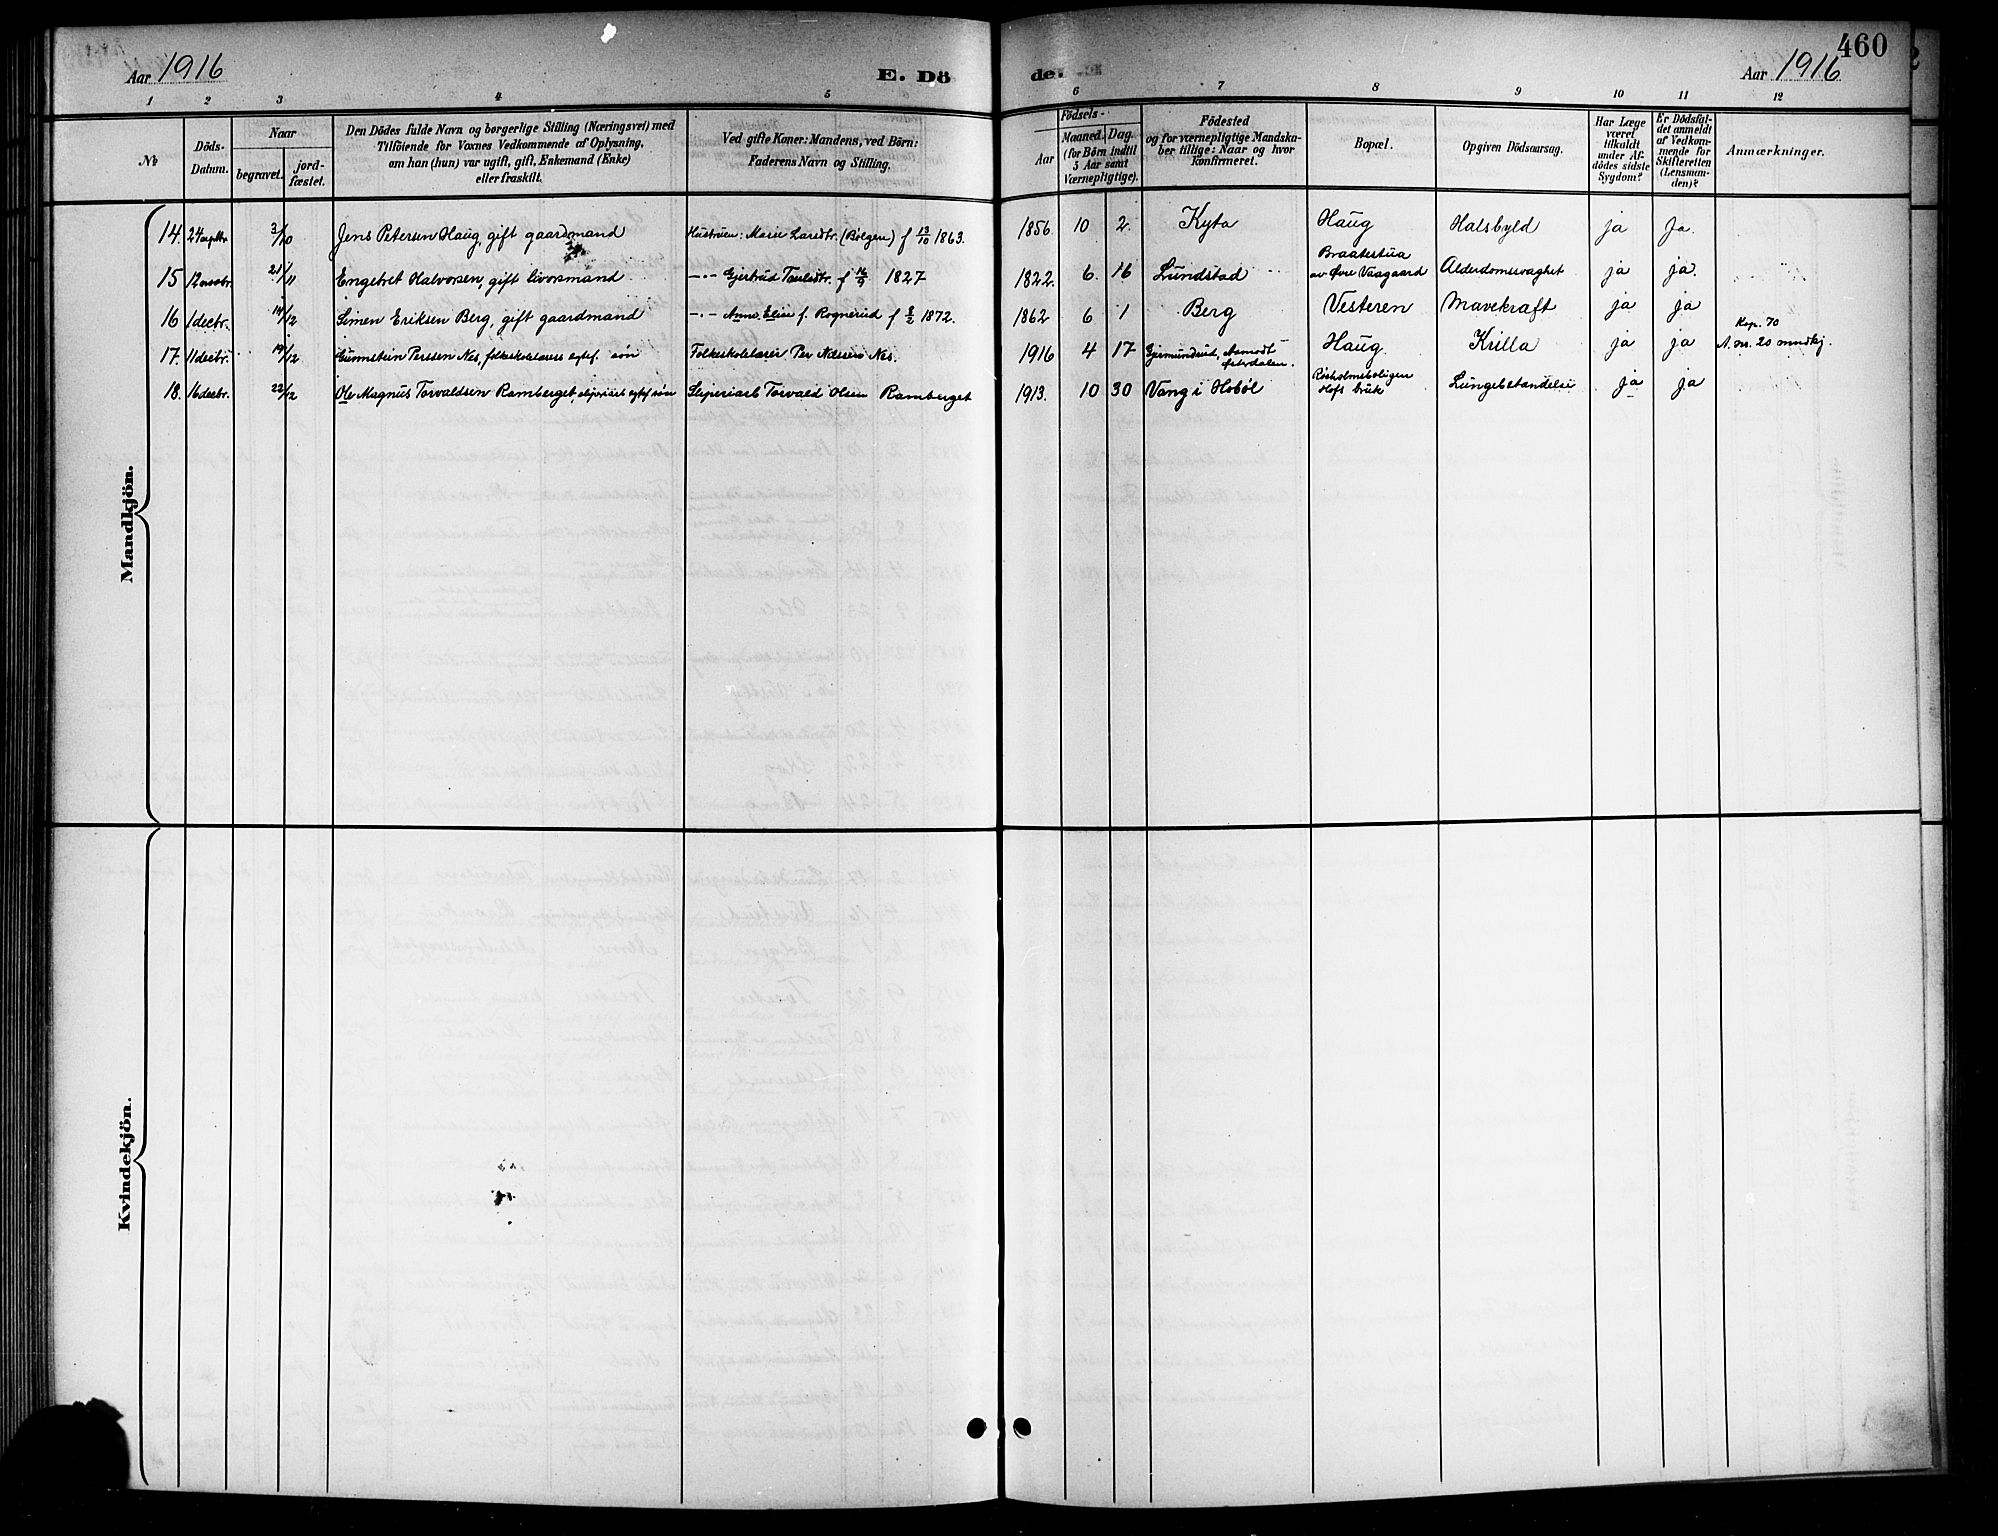 460
Aar 1916
E. Dö
de
Aar 1916
1 2 3 4 5 6 7 8 9 10 11 12
No
Döds-
Datum.
Naar
begravet.
jord-
fæstet.
Den Dödes fulde Navn og borgerlige Stilling (Næringsvei) med
Tilföiende for Voxnes Vedkommende af Oplysning,
om han (hun) var ugift, gift, Enkemand (Enke)
eller fraskilt.
Ved gifte Koner: Mandens, ved Börn:
Faderens Navn og Stilling.
Födsels-
Aar
Maaned. Dag.
(for Börn indtil
5 Aar samt
Værnepligtige).
Födested
og for værnepligtige Mandska-
ber tillige: Naar og hvor
Konfirmeret.
Bopæl.
Opgiven Dödsaarsag.
Har Læge
været
tilkaldt
under Af-
dödes sidste
Sygdom?
Er Dödsfal-
det anmeldt
af Vedkom-
mende for
Skifteretten
(Lensman-
den)?
Anmærkninger.
Mandkjön.
14. 24 septbr. 3/10 Jens Petersen Haug, gift gaardmand Hustruen: Marie Larsdtr. (Bolgen) f 13/10 1863. 1856. 10 2. Kyta Haug Halsbyld ja Ja.
15 12 novbr. 21/11 Engebret Halvorsen, gift livørsmand —"— Gjertrud Paulsdtr. f 16/9 1827 1822. 6. 16 Lundstad Braatestua
av Øvre Vaagaard Alderdomssvaghet ja ja.
16 1 decbr. 14/12 Simen Eriksen Berg, gift gaardmand —"— Anne Elise f. Rognerud f 8/2 1872. 1862 6 1 Berg Vesteren Mavekræft ja ja
17. 11 decbr. 19/12 Gunnstein Perssen Nes, folkeskolelærers egtef. søn Folkeskolelærer Per Nilssen Nes. 1916 4 17 Gjermundrud, Aamodt
Østerdalen. Haug. Krilla ja ja Kop. 70
A. nr. 20 mndkj.
18. 16 decbr. 22/12 Ole Magnus Torvaldsen Ramberget, sliperiarb. egtef søn Sliperiarb Torvald Olsen Ramberget 1913. 10 30 Vang i Hobøl Røsholmsboligen
Hofs bruk Lungebetændelse ja ja
Kvindekjön.